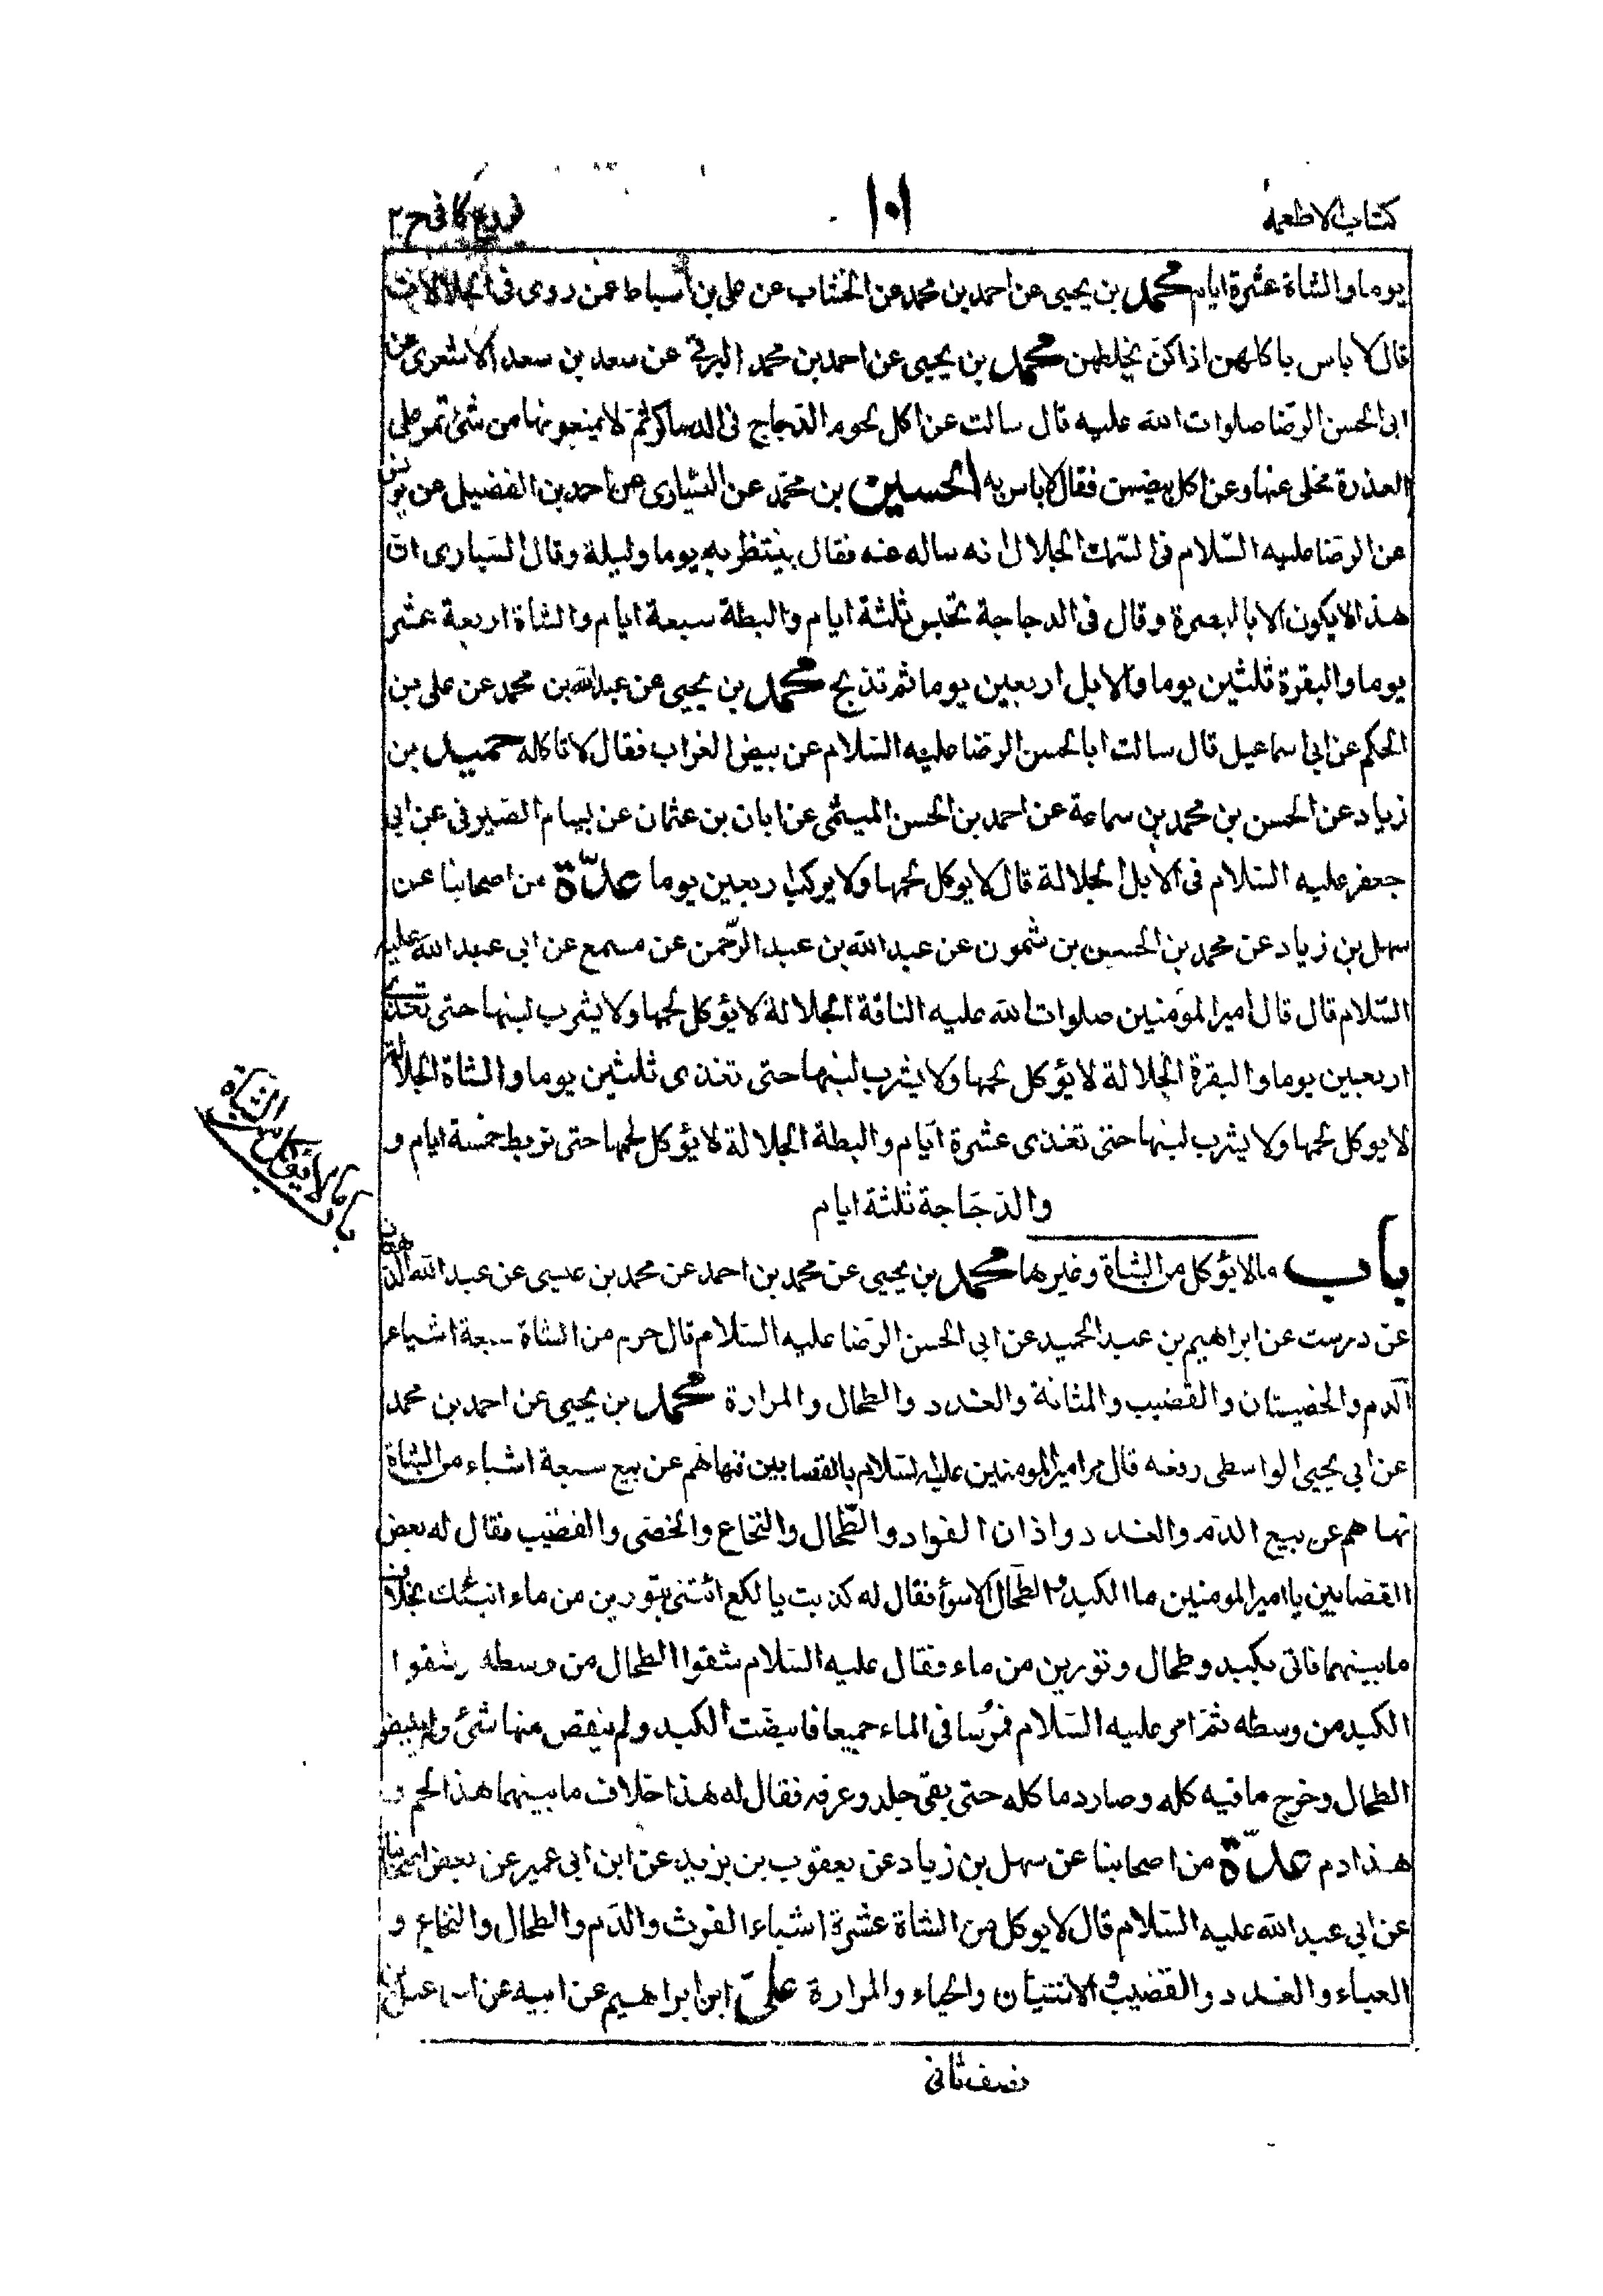 كتاب الاطعمة
١٠١
فروع كافى ج ٢
يوما والشاة عشرة ايام محمد بن يحيى عن احمد بن محمد عن الخشاب عن على بن اسباط عمن روى فى الجلالات
قال لا باس باكلهن اذا كن يخلطن محمد بن يحيى عن احمد بن محمد البرقى عن سعد بن سعد الاشعرى عن
ابى الحسن الرضا صلوات الله عليه قال سالت عن اكل لحوم الدجاج فى الدساكر ثم لا يمنعونها من شئ تمر على
العذرة مخلى عنها وعن اكل بيضهن فقال لا باس به الحسين بن محمد عن السيارى عن احمد بن الفضيل عن يونس
عن الرضا عليه السلام فى السمك الجلال انه ساله عنه فقال ينتظر به يوما وليلة وقال السيارى ان
هذا لا يكون الا بالبصرة وقال فى الدجاجة تحبس ثلثة ايام والبطة سبعة ايام والشاة اربعة عشر
يوما والبقرة ثلثين يوما والابل اربعين يوما ثم تذبح محمد بن يحيى عن عبد الله بن محمد عن على بن
الحكم عن ابى اسماعيل قال سالت ابا الحسن الرضا عليه السلام عن بيض الغراب فقال لا تاكله حميد بن
زياد عن الحسن بن محمد بن سماعة عن احمد بن الحسن الميثمى عن ابان بن عثمان عن بسام الصيرفى عن ابى
جعفر عليه السلام فى الابل الجلالة قال لا يوكل لحمها ولا يركب اربعين يوما عدّة من اصحابنا عن
سهل بن زياد عن محمد بن الحسين بن شمون عن عبد الله بن عبد الرّحمن عن مسمع عن ابى عبد الله عليه
السّلام قال قال امير المؤمنين صلوات الله عليه الناقة الجلالة لا يؤكل لحمها ولا يشرب لبنها حتى تغذى
اربعين يوما والبقرة الجلالة لا يؤكل لحمها ولا يشرب لبنها حتى تغذى ثلثين يوما والشاة الجلالة
لا يوكل لحمها ولا يشرب لبنها حتى تغذى عشرة ايّام والبطة الجلالة لا يؤكل لحمها حتى تربط خمسة ايام و
والدّجاجة ثلثة ايام
باب ما لا يؤكل من الشاة
باب ما لا يؤكل من الشاة وغيرها محمد بن يحيى عن محمد بن احمد عن محمد بن عيسى عن عبد الله الدهقان
عن درست عن ابراهيم بن عبد الحميد عن ابى الحسن الرّضا عليه السّلام قال حرم من الشاة سبعة اشياء
الدم والخصيتان والقضيب والمثانة والغدد والطحال والمرارة محمد بن يحيى عن احمد بن محمد
عن ابى يحيى الواسطى رفعه قال مر امير المومنين عليه السّلام بالقصابين فنهاهم عن بيع سبعة اشياء من الشاة
نهاهم عن بيع الدّم والغدد واذان الفواد والطّحال والنخاع والخصى والقضيب فقال له بعض
القصابين يا امير المومنين ما الكبد والطحال الا سواء فقال له كذبت يا لكع ائتنى بتورين من ماء انبئك بخلاف
ما بينهما فاتى بكبد وطحال وتورين من ماء فقال عليه السّلام شقوا الطحال من وسطه وشقوا
الكبد من وسطه ثمّ امر عليه السّلام فمرسا فى الماء جميعا فابيضت الكبد ولم ينقص منها شئ ولم يبيض
الطحال وخرج ما فيه كله وصار دما كله حتى بقى جلد وعرقه فقال له هذا خلاف ما بينهما هذا لحم و
هذا دم عدّة من اصحابنا عن سهل بن زياد عن يعقوب بن يزيد عن ابن ابى عمير عن بعض اصحابنا
عن ابى عبد الله عليه السّلام قال لا يوكل من الشاة عشرة اشياء الفرث والدّم والطحال والنخاع و
العلباء والغدد والقضيب والانثيان والحياء والمرارة علىّ ابن ابراهيم عن ابيه عن اسماعيل بن
نصف ثانى